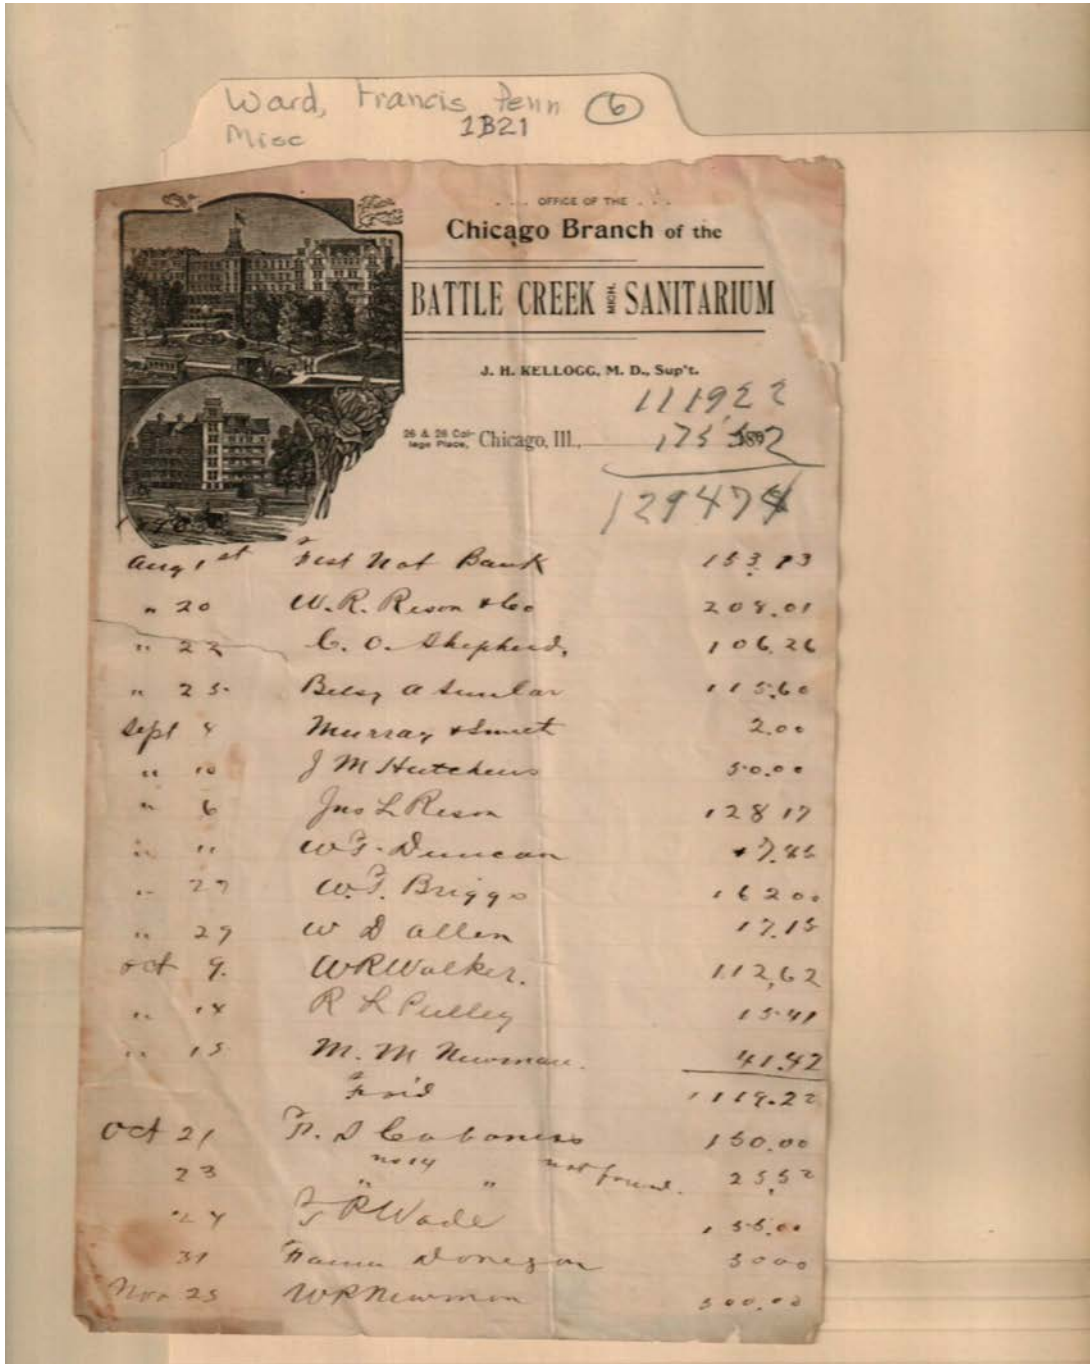 Ward, Francis Penn 6
Misc 1B21
OFFICE OF THE
Chicago Branch of the
BATTLE CREEK MICH. SANITARIUM
J. H. KELLOGG, M. D., Sup't.
1119 22
26 & 28 College Place, Chicago, Ill., 1897
175 52
1294 74
Aug 1st Nat Bank 153.
" 20 W. R. Rison & Co 208.01
" 22 C. O. Shepherd, 106.26
" 25 115.60
Sept 8 Murray & Smith 2.00
" 10 J M Hutchens 50.00
" 6 Jno L Rison 128 17
" " W. F. Duncan
" 27 W. F. Briggs 162 00
" 29 W D Allen 17.15
Oct 9. W R Walker. 112,62
" 14 R L Pulley 15.41
" 15 M. M Newman. 41.42
For'd 1119.22
Oct 21 Cabaniss 150.00
no 14 not found.
23 " " 25.52
24 F R Wade 155.00
31 Donegan
Nov 25 W P Newman 500.00